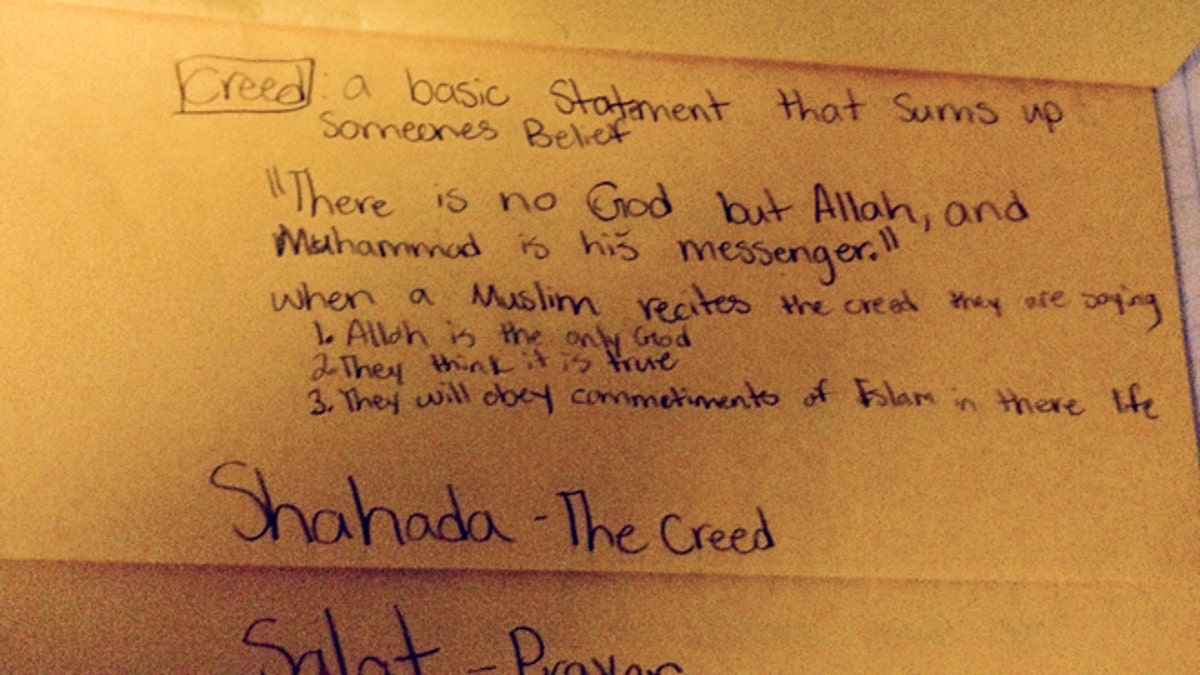 Creed: a basic Statement that Sums up
Someones Belief
"There is no God but Allah, and
Muhammad is his messenger."
when a Muslim recites the creed they are saying
1. Allah is the only God
2. They think it is true
3. They will obey commetiments of Islam in there life
Shahada - The Creed
Salat - Prayer